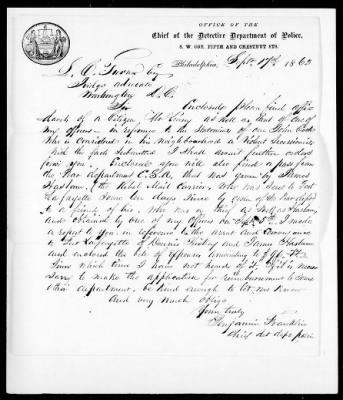 OFFICE OF THE
Chief of the Detective Department of Police,
S. W. COR. FIFTH AND CHESTNUT STS.
Philadelphia, Sept 17th 1862
L. C. Turner Esq
Judge advocate
Washington D.C.
Sir Enclosed please find affi-
davits of a Citizen as well as that of one of
my officers in reference to the statements of one John Cook
who is considered in his neighbourhood a Violent Secessionist
With the facts submitted I shall await further orders
from you. Enclosed you will also find a pass from
the War department C.S.A. that was given by James
Haslam, the Rebel Mail Carrier, who was sent to Fort
Lafayette some ten days since by order of the War dept
to a friend of his, who was a spy as well as Haslam,
and obtained by one of my officers on Sept 8th I made
a report to you in reference to the arrest and conveyance
to Fort Lafayette of Dennis and James Haslam
and enclosed the bill of expenses amounting to
since which time I have not heard of it. If it is neces-
sary to make the application for reimbursement to some
other department, be kind enough to let me know
and very much oblige
Yours truly
Benjamin Franklin
Chief det dept police